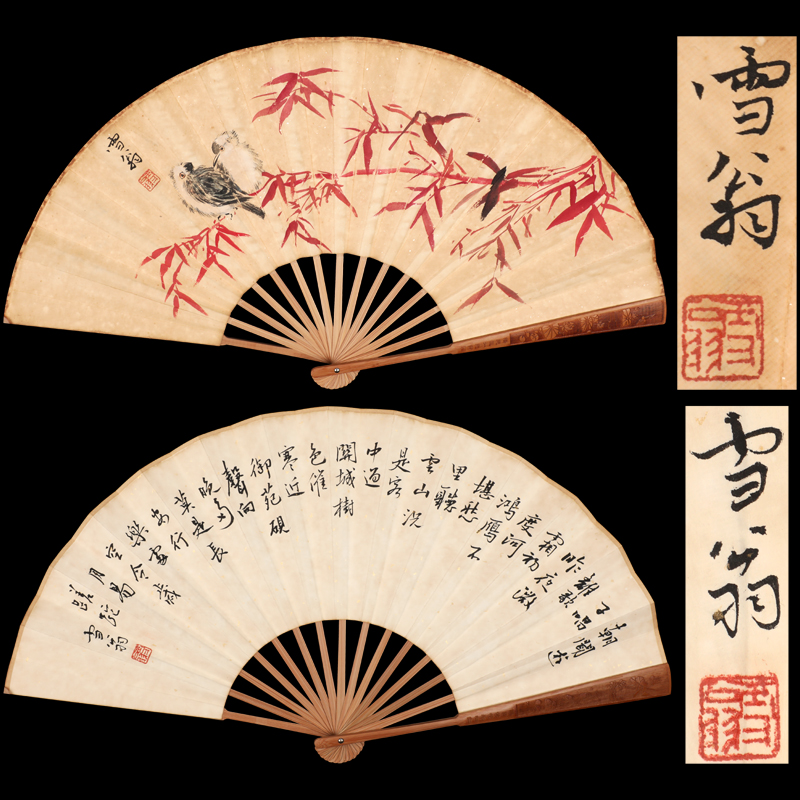 雪翁
雪翁
朝聞遊
子唱
離歌
昨夜微
霜初
度河
鴻鴈不
堪愁
里聽
雲山況
是客
中過
關城樹
色催
寒近
御苑砧
聲向
晚多
莫是長
安行
樂處
空令歲
月易
蹉跎
雪翁
雪翁